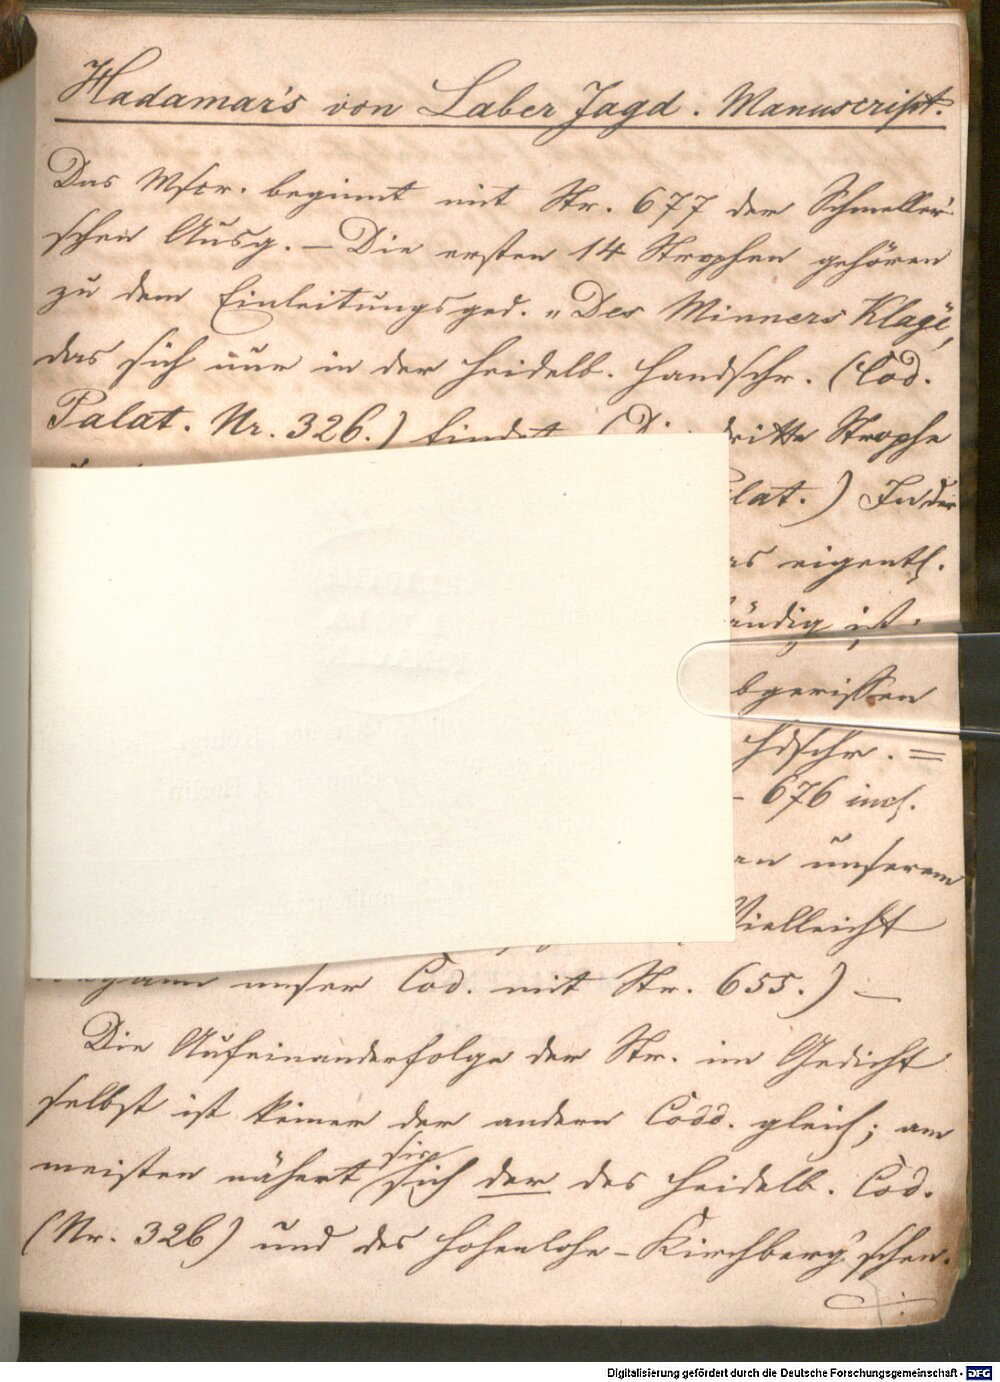 Hadamar's von Laber Jagd. Manuscript.
Das Mscr. beginnt mit Str. 677 der Schmeller'
schen Ausg. – Die ersten 14 Strophen gehören
zu dem Einleitungsged. „Des Minners Klage",
das sich nur in der Heidelb. Handschr. (Cod.
Palat. Nr. 326.) findet. (Die dritte Strophe
lat.) In der
eigentl.
ändig ist.
bgerissen
Hdschr. =
– 676 incl.
an unserem
Vielleicht
unser Cod. mit Str. 655.) –
Die Aufeinanderfolge der Str. im Gedicht
selbst ist keiner der andern Codd. gleich; am
meisten nähert sie sich der des Heidelb. Cod.
(Nr. 326) und des Hohenlohe-Kirchberg'schen.
Digitalisierung gefördert durch die Deutsche Forschungsgemeinschaft - DFG